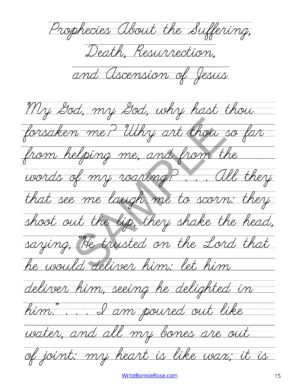 Prophecies About the Suffering,
Death, Resurrection,
and Ascension of Jesus
My God, my God, why hast thou
forsaken me? Why art thou so far
from helping me, and from the
words of my roaring? . . . All they
that see me laugh me to scorn: they
shoot out the lip, they shake the head,
saying, "He trusted on the Lord that
he would deliver him: let him
deliver him, seeing he delighted in
him." . . . I am poured out like
water, and all my bones are out
of joint: my heart is like wax; it is
SAMPLE
WriteBonnieRose.com
15